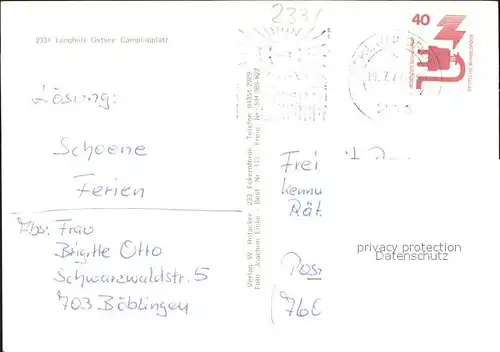 2331 Langholz Ostsee Campingplatz
2331
40
DEUTSCHE BUNDESPOST
Lösung:
Schoene
Ferien
Abs: Frau
Brigitte Otto
Schwarzwaldstr. 5
703 Böblingen
Verlag W. Hofacker, 233 Eckernförde, Telefon 04351-2089
Foto Joachim Eicke · Best Nr 117 Freig. Nr. SH 189-822
Frei
Kennu
Rät
privacy protection
Datenschutz
Pos
(760